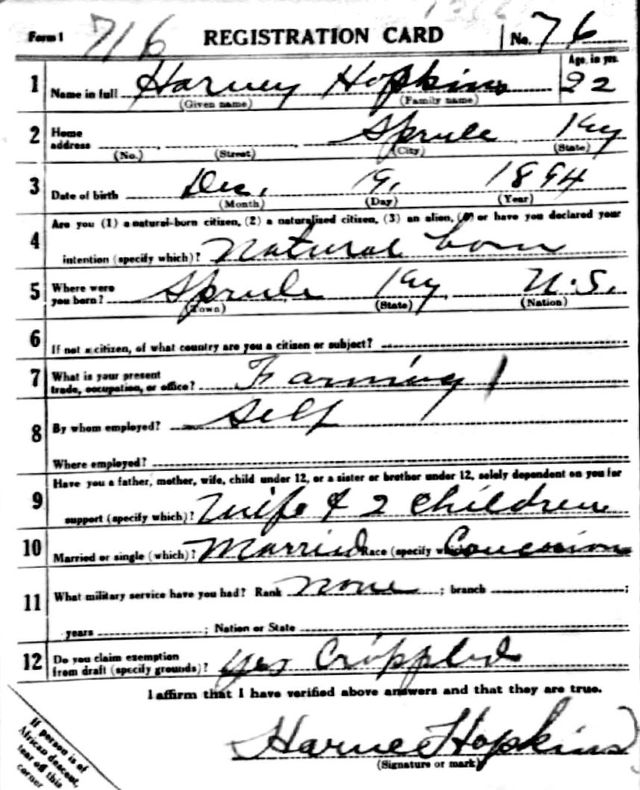 Form 1 716 REGISTRATION CARD No. 76
Age, in yrs.
1 Name in full Harvey Hopkins 22
(Given name) (Family name)
2 Home address Sprule Ky
(No.) (Street) (City) (State)
3 Date of birth Dec. 19, 1894
(Month) (Day) (Year)
Are you (1) a natural-born citizen, (2) a naturalized citizen, (3) an alien, (4) or have you declared your
4 intention (specify which)? Natural born
5 Where were you born? Sprule Ky U.S.
(Town) (State) (Nation)
6 If not a citizen, of what country are you a citizen or subject?
7 What is your present trade, occupation, or office? Farming
8 By whom employed? Self
Where employed?
Have you a father, mother, wife, child under 12, or a sister or brother under 12, solely dependent on you for
9 support (specify which)? Wife & 2 Children
10 Married or single (which)? Married Race (specify which)?
11 What military service have you had? Rank none ; branch ;
years ; Nation or State
12 Do you claim exemption from draft (specify grounds)? yes Crippled
I affirm that I have verified above answers and that they are true.
Harve Hopkins
(Signature or mark)
If person is of
African descent,
tear off this
corner